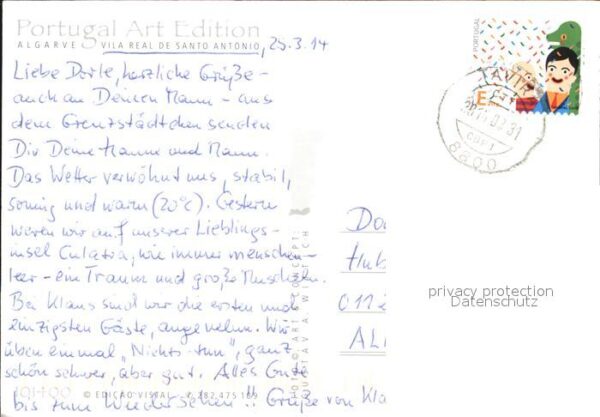 Portugal Art Edition
ALGARVE VILA REAL DE SANTO ANTÓNIO, 25.3.14
Liebe Dorle, herzliche Grüße -
auch an Deinen Mann - aus
dem Grenzstädtchen senden
Dir Deine Hanne und Mann.
Das Wetter verwöhnt uns, stabil,
sonnig und warm (20°C). Gestern
waren wir auf unserer Lieblings-
insel Culatra, wie immer menschen-
leer - ein Traum und große Muscheln.
Bei Klaus sind wir die ersten und
einzigsten Gäste, angenehm. Wir
üben einmal "Nichts-tun", ganz
schön schwer, aber gut. Alles Gute
bis zum Wieder Sehen!! Grüße von Kla
101100 © EDIÇÃO VISTAL
PORTUGAL
E
TAVI
CTT
8800
011
AL
privacy protection
Datenschutz